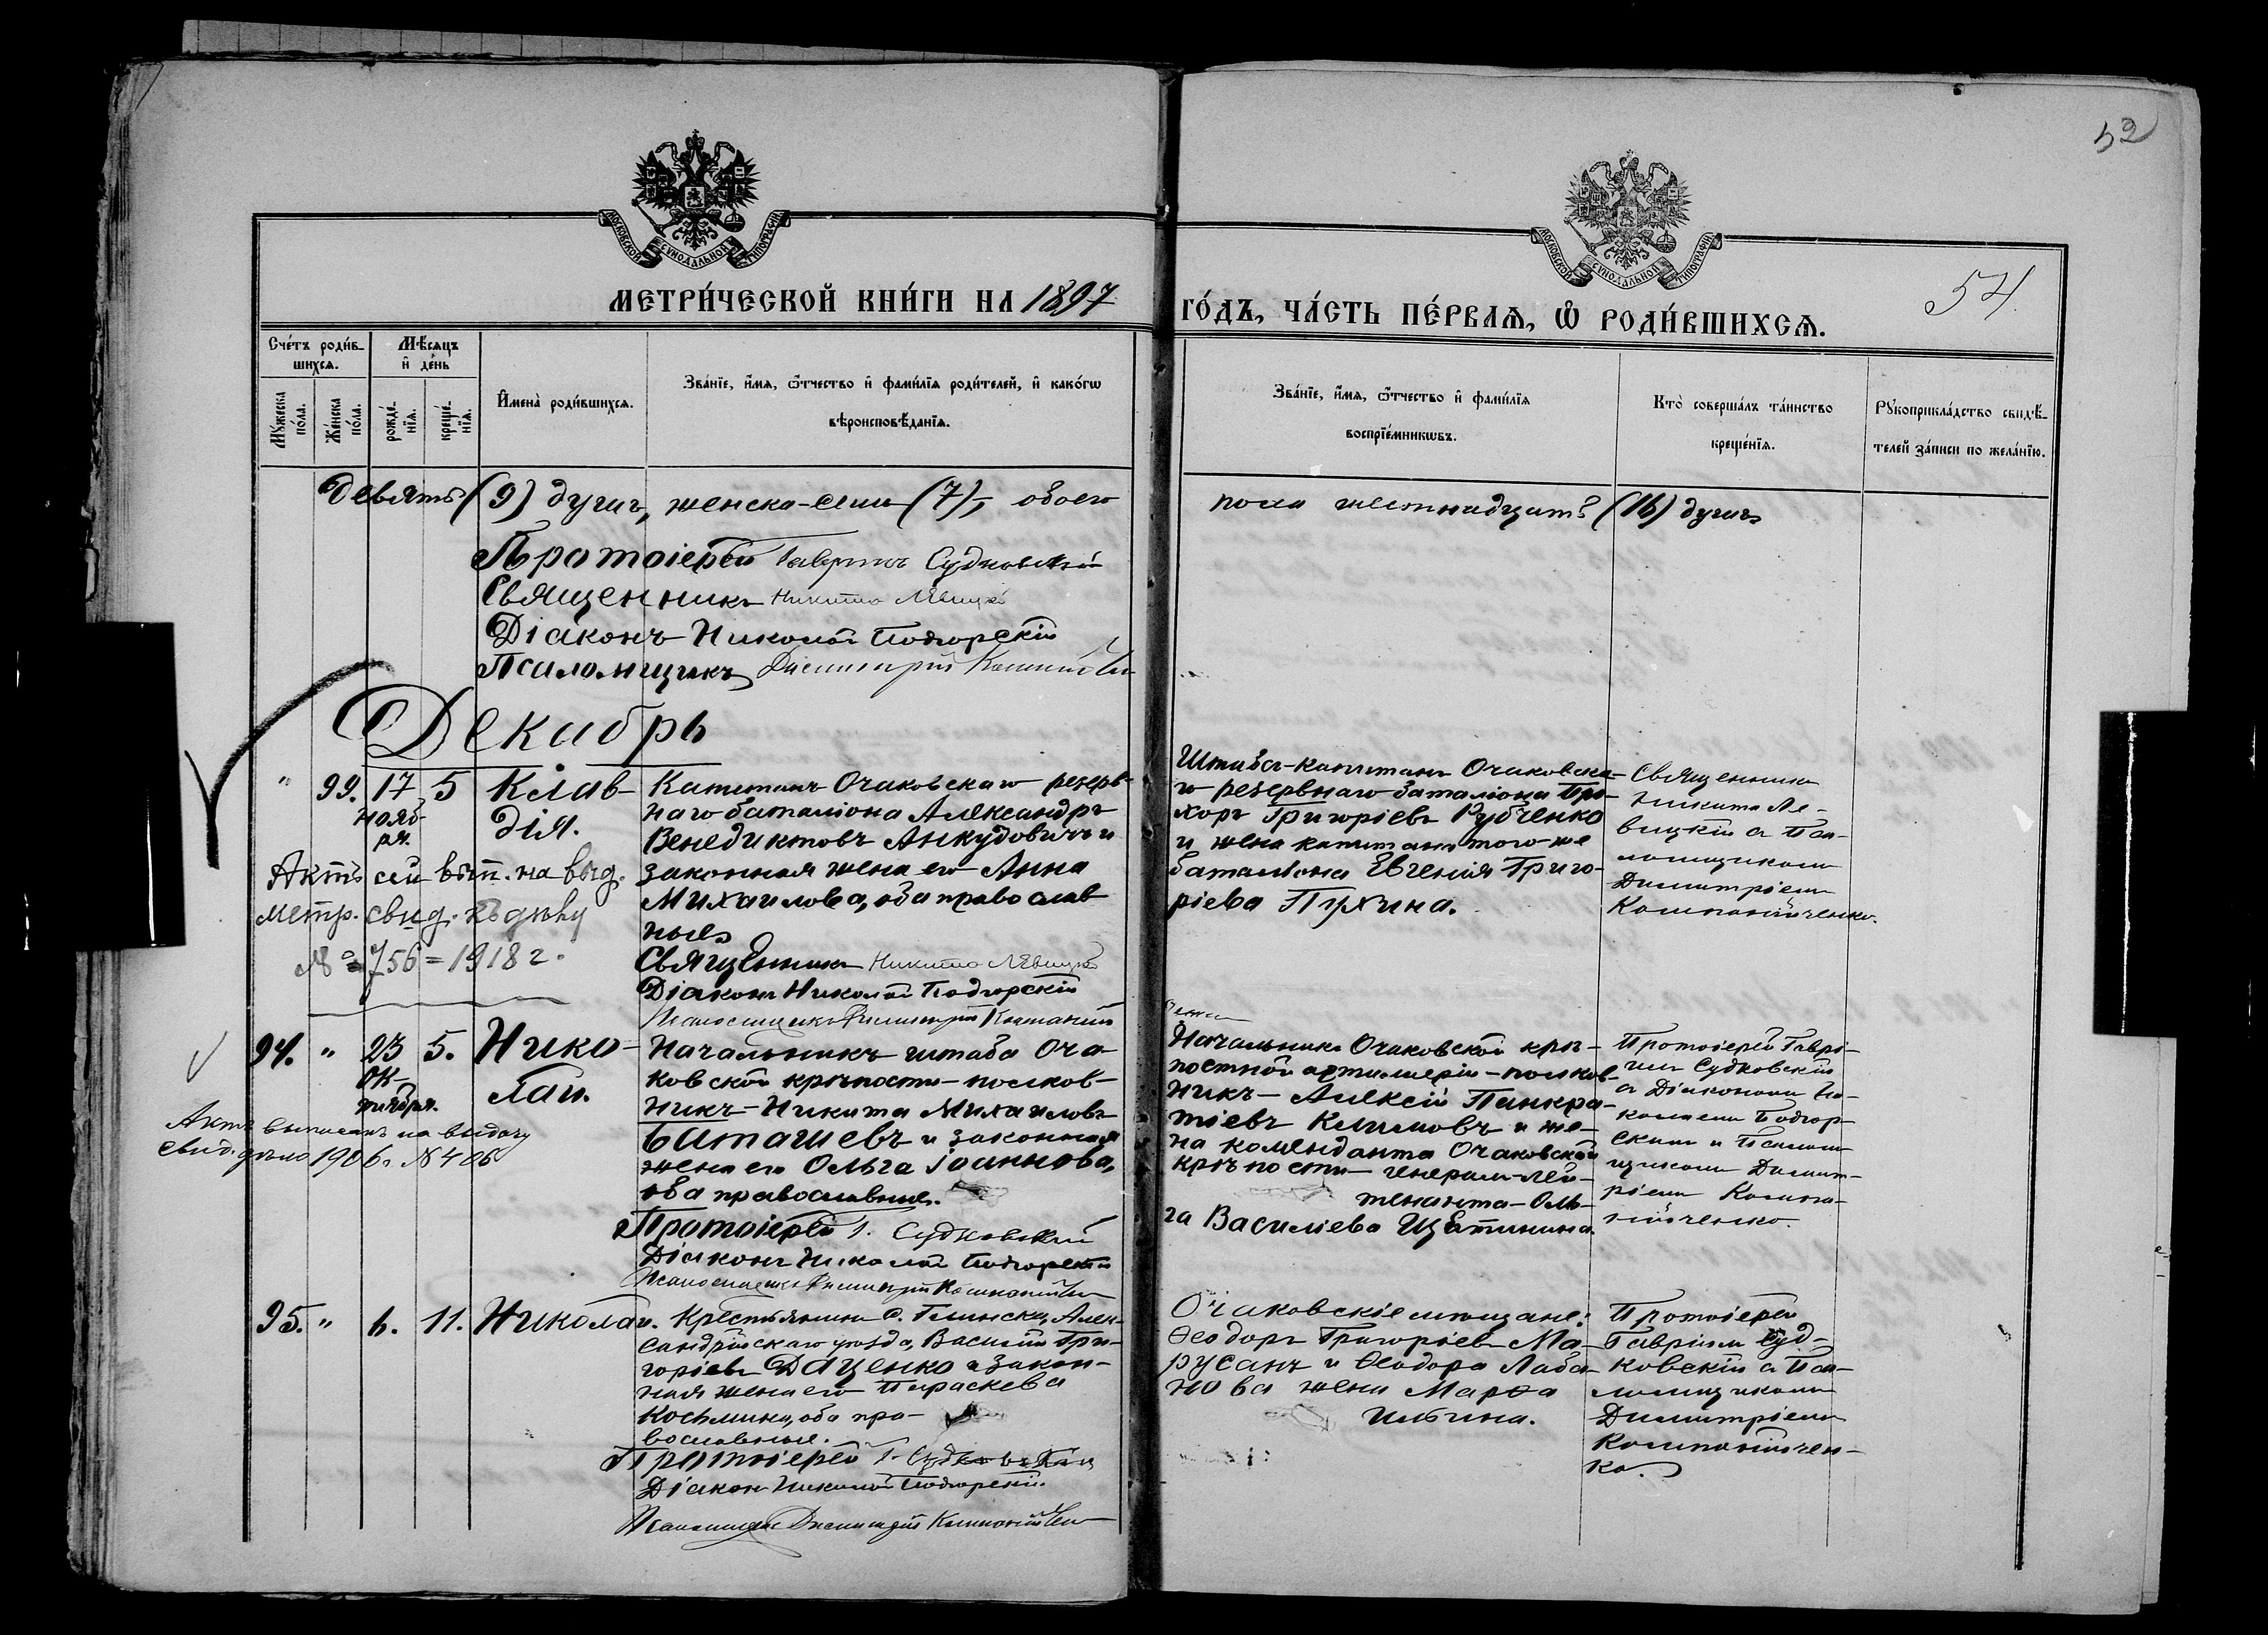 52
МОСКОВСКОЙ СУНОДАЛЬНОЙ ТИПОГРАФІИ
МОСКОВСКОЙ СУНОДАЛЬНОЙ ТИПОГРАФІИ
МЕТРИ́ЧЕСКОЙ КНИ́ГИ НА 1897
ГО́ДЪ, ЧА́СТЬ ПЕ́РВАѦ, Ѽ РОДИ́ВШИХСѦ.
54.
Сче́тъ роди́в-
шихсѧ.
Мѣ́сѧцъ
и҆ де́нь
Мꙋ́жеска
по́ла.
Же́нска
по́ла.
рожде́-
нїѧ.
креще́-
нїѧ.
И҆мена̀ роди́вшихсѧ.
Зва́нїе, и҆́мѧ, ѻ҆́тчество и҆ фами́лїѧ роди́телей, и҆ како́гѡ
вѣроисповѣ́данїѧ.
Зва́нїе, и҆́мѧ, ѻ҆́тчество и҆ фами́лїѧ
воспрїе́мникѡвъ.
Кто̀ соверша́лъ та́инство
креще́нїѧ.
Рꙋкоприкла́дство свидѣ́-
телей за́писи по жела́нїю.
Девять (9) душъ, женска-семь (7), обоего
пола шестнадцать (16) душъ
Протоіерей Гавріилъ Судковскій
Священникъ Никита Левицкій
Діаконъ Николай Подгорскій
Псаломщикъ Димитрій
Декабрь
" 99. 17 5 Клав-
нояб-
ря.
дія.
Капитанъ Очаковскаго резерв-
наго баталіона Александръ
Венедиктовъ Анкудовичъ и
законная жена его Анна
Михаилова, оба православ
ные
Священникъ Никита Левицкій
Діаконъ Николай Подгорскій
Псаломщикъ Димитрій
Штабсъ-капитанъ Очаковска-
го резервнаго баталіона Про-
хоръ Григоріевъ Рубченко
и жена капитана того-же
баталіона Евгенія Григо-
ріева Пухина.
Священникъ
Никита Ле-
вицкій съ Пса-
ломщикомъ
Димитріемъ
Компанійченко.
Актъ сей вып. на выд.
метр. свид. къ дѣлу
№ 756 = 1918 г.
94. " 23 5. Нико-
ок-
тября.
лай.
Начальникъ штаба Оча-
ковской крѣпости-полков-
никъ-Никита Михаиловъ
Баташевъ и законная
жена его Ольга Іоаннова,
оба православные.
Протоіерей Г. Судковскій
Діаконъ Николай Подгорскій
Псаломщикъ Димитрій
Начальникъ Очаковской крѣ-
постной артиллеріи-полков-
никъ-Алексій Панкра-
тіевъ Климовъ и же-
на коменданта Очаковской
крѣпости-генералъ-лей-
тенанта-Оль-
га Василіева Щетинина.
Протоіерей Гаврі-
илъ Судковскій
съ Діакономъ Ни-
колаемъ Подгор-
скимъ и Псалом-
щикомъ Димит-
ріемъ Компа-
нійченко.
Актъ выписанъ на выдачу
свид. дѣло 1906 г. №406
95. " 6. 11. Николай.
Крестьянинъ с. Глинска, Алек-
сандрійскаго уѣзда, Василій Гри-
горіевъ Даценко и закон-
ная жена его Параскева
Космина, оба пра-
вославные.
Протоіерей Г. Судковскій
Діаконъ Николай Подгорскій.
Псаломщикъ Димитрій
Очаковскіе мѣщане:
Ѳеодоръ Григоріевъ Ма-
русанъ и Ѳеодора Лаба-
нова жена Марѳа
Ильина.
Протоіерей
Гавріилъ Суд-
ковскій съ Пса-
ломщикомъ
Димитріемъ
Компанійчен-
ко.